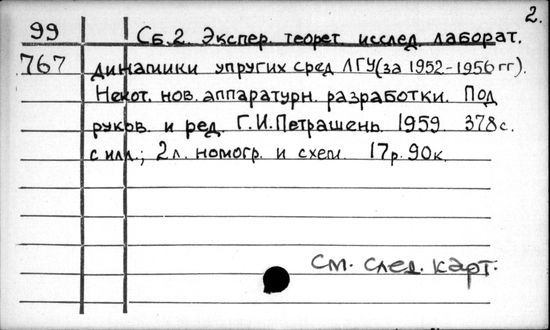 2.
99 Сб.2. Экспер. теорет. исслед. лаборат.
767 динамики упругих сред ЛГУ (за 1952-1956 гг).
Некот. нов. аппаратурн. разработки. Под
руков. и ред. Г.И.Петрашень. 1959. 378с.
с илл.; 2л. номогр. и схем. 17р. 90к.
см. след. карт.